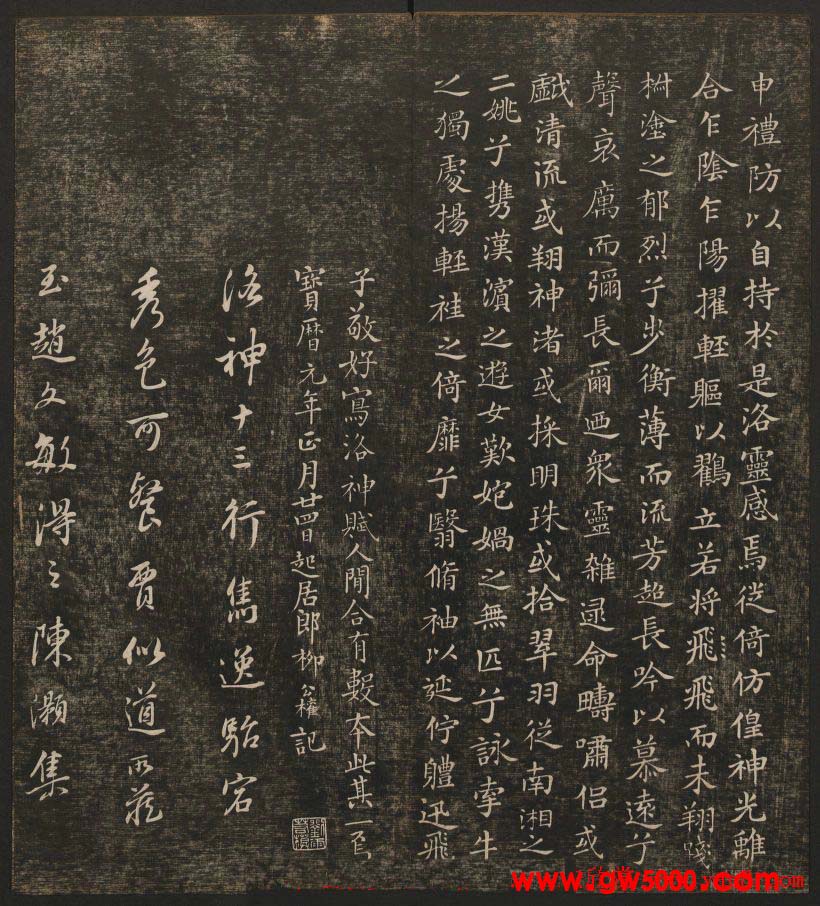 申禮防以自持於是洛靈感焉徙倚仿偟神光離
合乍陰乍陽擢輕軀以鸖立若將飛飛而未翔踐
椒塗之郁烈兮步衡薄而流芳超長吟以慕遠兮
聲哀厲而彌長爾迺衆靈雜遝命疇嘯侶或
戲清流或翔神渚或採明珠或拾翠羽從南湘之
二姚兮携漢濱之遊女歎炮媧之無匹兮詠牽牛
之獨處揚輕袿之倚靡兮翳脩袖以延佇體迅飛
子敬好寫洛神賦人間合有數本此其一焉
寶曆元年正月廿四日起居郎柳公權記
洛神十三行雋逸駘宕
秀色可餐賈似道所藏
至趙文敏得之陳灝集
www.gw5000.com